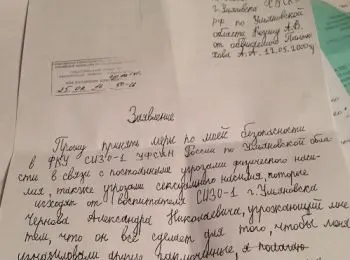 г. Ульяновска
РФ по Ульяновской
области
от обвиняемого
А. А. 12.05.2000г
25.04
Заявление
Прошу принять меры по моей безопасности
в ФКУ СИЗО-1 УФСИН России по Ульяновской обла-
сти в связи с постоянными угрозами физического наси-
лия, также угрозами сексуального насилия, которые
исходят от воспитателя СИЗО-1 г. Ульяновска
Чернова Александра Николаевича, угрожающий мне
тем, что он всё сделает для того, чтобы меня
изнасиловали другие заключённые, я полагаю